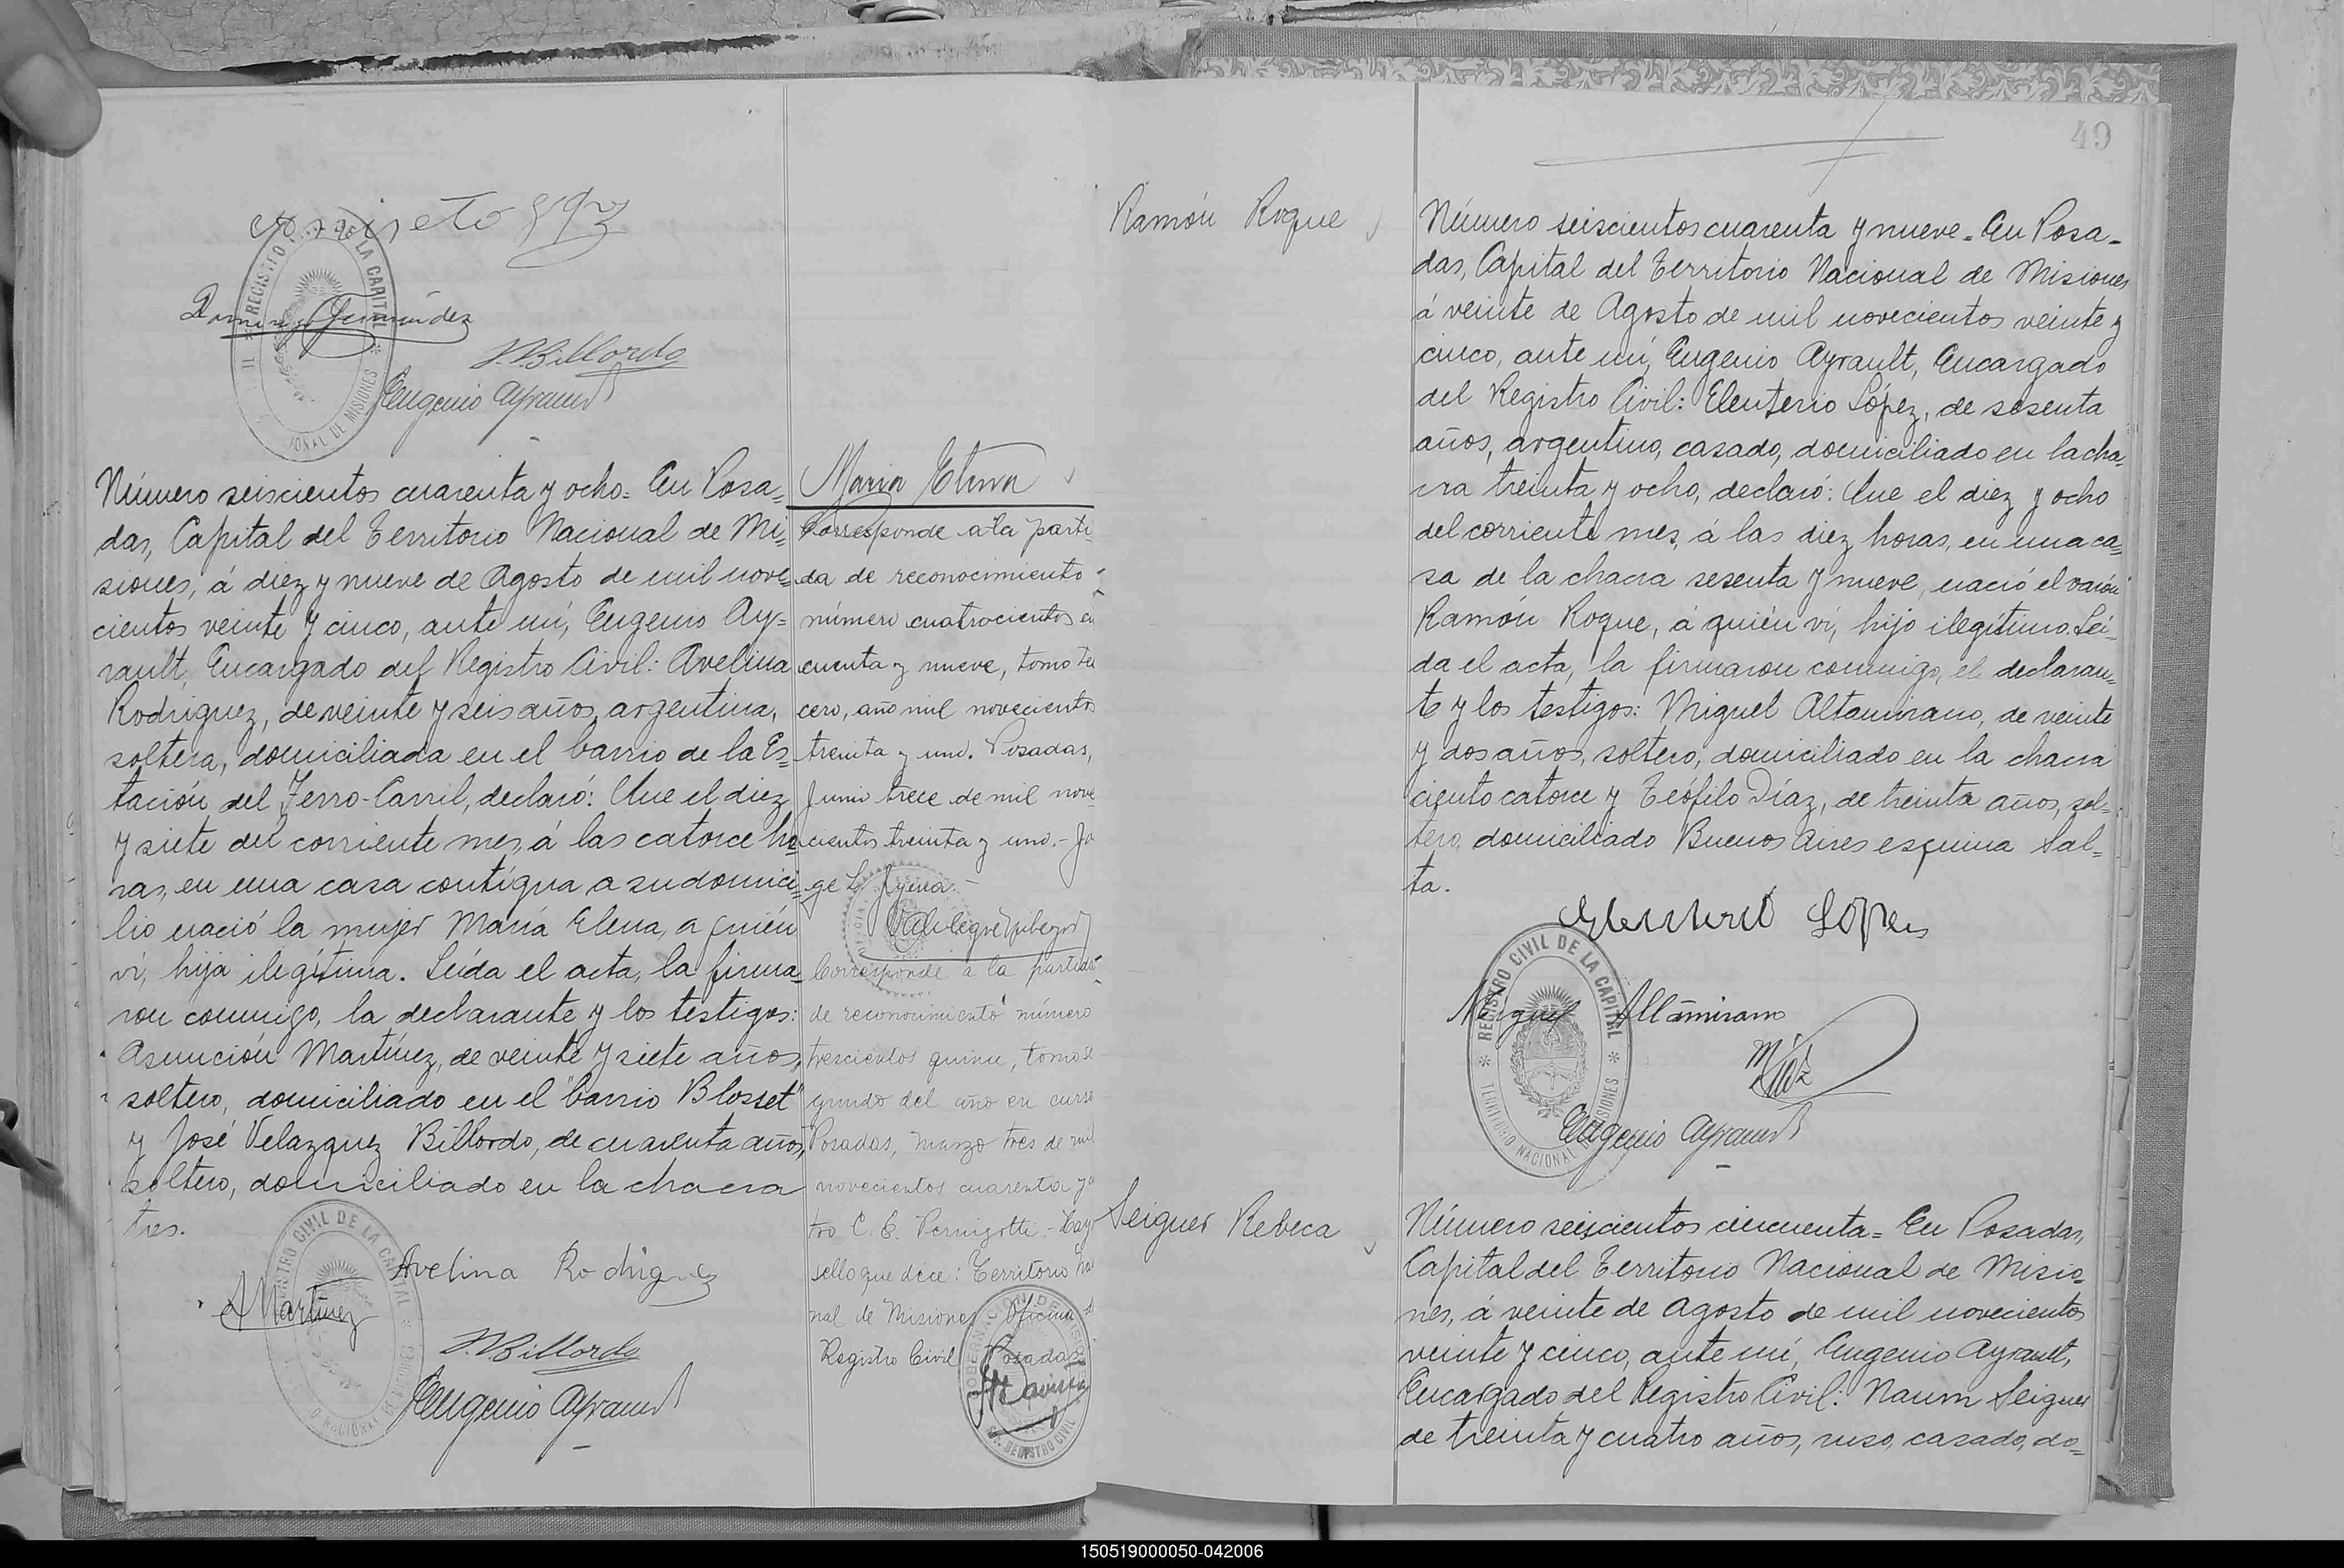 Domingo Fernández
J.V.Billordo
Eugenio Ayrault
Número seiscientos cuarenta y ocho= En Posa=
das, Capital del Territorio Nacional de Mi=
siones, á diez y nueve de Agosto de mil nove=
cientos veinte y cinco, ante mí, Eugenio Ay=
rault, Encargado del Registro Civil: Avelina
Rodriguez, de veinte y seis años, argentina,
soltera, domiciliada en el barrio de la Es=
tación del Ferro-Carril, declaró: Que el diez
y siete del corriente mes, á las catorce ho=
ras, en una casa contígua a su domici=
lio nació la mujer María Elena, a quién
ví, hija ilegítima. Leída el acta, la firma=
ron conmigo, la declarante y los testigos:
Asunción Martínez, de veinte y siete años,
soltero, domiciliado en el "barrio Blosset"
y José Velazquez Billordo, de cuarenta años,
soltero, domiciliado en la chacra
tres.
Avelina Rodriguez
A Martinez
J.V.Billordo
Eugenio Ayrault
REGISTRO CIVIL DE LA CAPITAL
Maria Elena
Corresponde a la parti
da de reconocimiento
número cuatrocientos
cuenta y nueve, tomo ter
cero, año mil novecientos
treinta y uno. Posadas,
Junio trece de mil nove
cientos treinta y uno.-
Corresponde a la partida
de reconocimiento número
trescientos quince, tomo se
gundo del año en curso
Posadas, marzo tres de mil
novecientos cuarenta y
tro C. E. Pernigotti - Hay
sello que dice: Territorio Na
nal de Misiones Oficina
Registro Civil Posadas
49
Ramón Roque
Número seiscientos cuarenta y nueve= En Posa=
das, Capital del Territorio Nacional de Misiones
á veinte de Agosto de mil novecientos veinte y
cinco, ante mí, Eugenio Ayrault, Encargado
del Registro Civil: Eleuterio López, de sesenta
años, argentino, casado, domiciliado en la cha=
cra treinta y ocho, declaró: Que el diez y ocho
del corriente mes, á las diez horas, en una ca=
sa de la chacra sesenta y nueve, nació el varón
Ramón Roque, á quién ví, hijo ilegítimo. Leí=
da el acta, la firmaron conmigo, el declaran=
te y los testigos: Miguel Altamirano, de veinte
y dos años, soltero, domiciliado en la chacra
ciento catorce y Teófilo Díaz, de treinta años, sol=
tero, domiciliado Buenos Aires esquina Sal=
ta.
Eleuterio Lopez
Miguel Altamirano
REGISTRO CIVIL DE LA CAPITAL
TERRITORIO NACIONAL DE MISIONES
Eugenio Ayrault
Seiguer Rebeca
Número seiscientos cincuenta= En Posadas,
Capital del Territorio Nacional de Misio=
nes, á veinte de Agosto de mil novecientos
veinte y cinco, ante mí, Eugenio Ayrault,
Encargado del Registro Civil: Naum Seiguer
de treinta y cuatro años, ruso, casado, do=
150519000050-042006